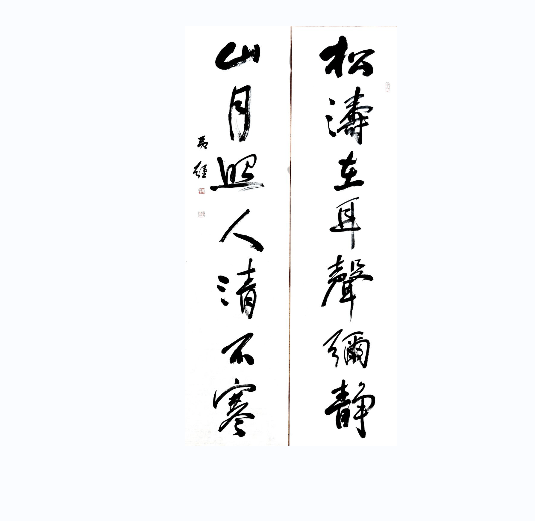 松濤在耳聲彌静
山月照人清不寒